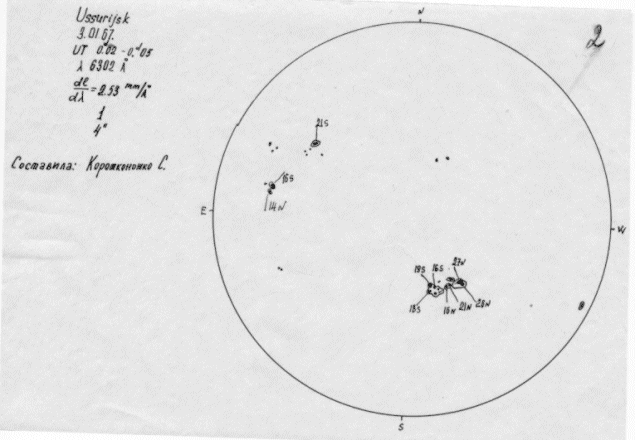 Ussurijsk
3.01 67.
UT 0.ᵈ02 - 0.ᵈ05
λ 6302 Å
dℓ/dλ = 2.53 mm/Å
1
4"
Составила: Коротконенко С.
2
N
21S
16S
14N
E
W
27N
19S
16S
18S
16N
21N
28N
S